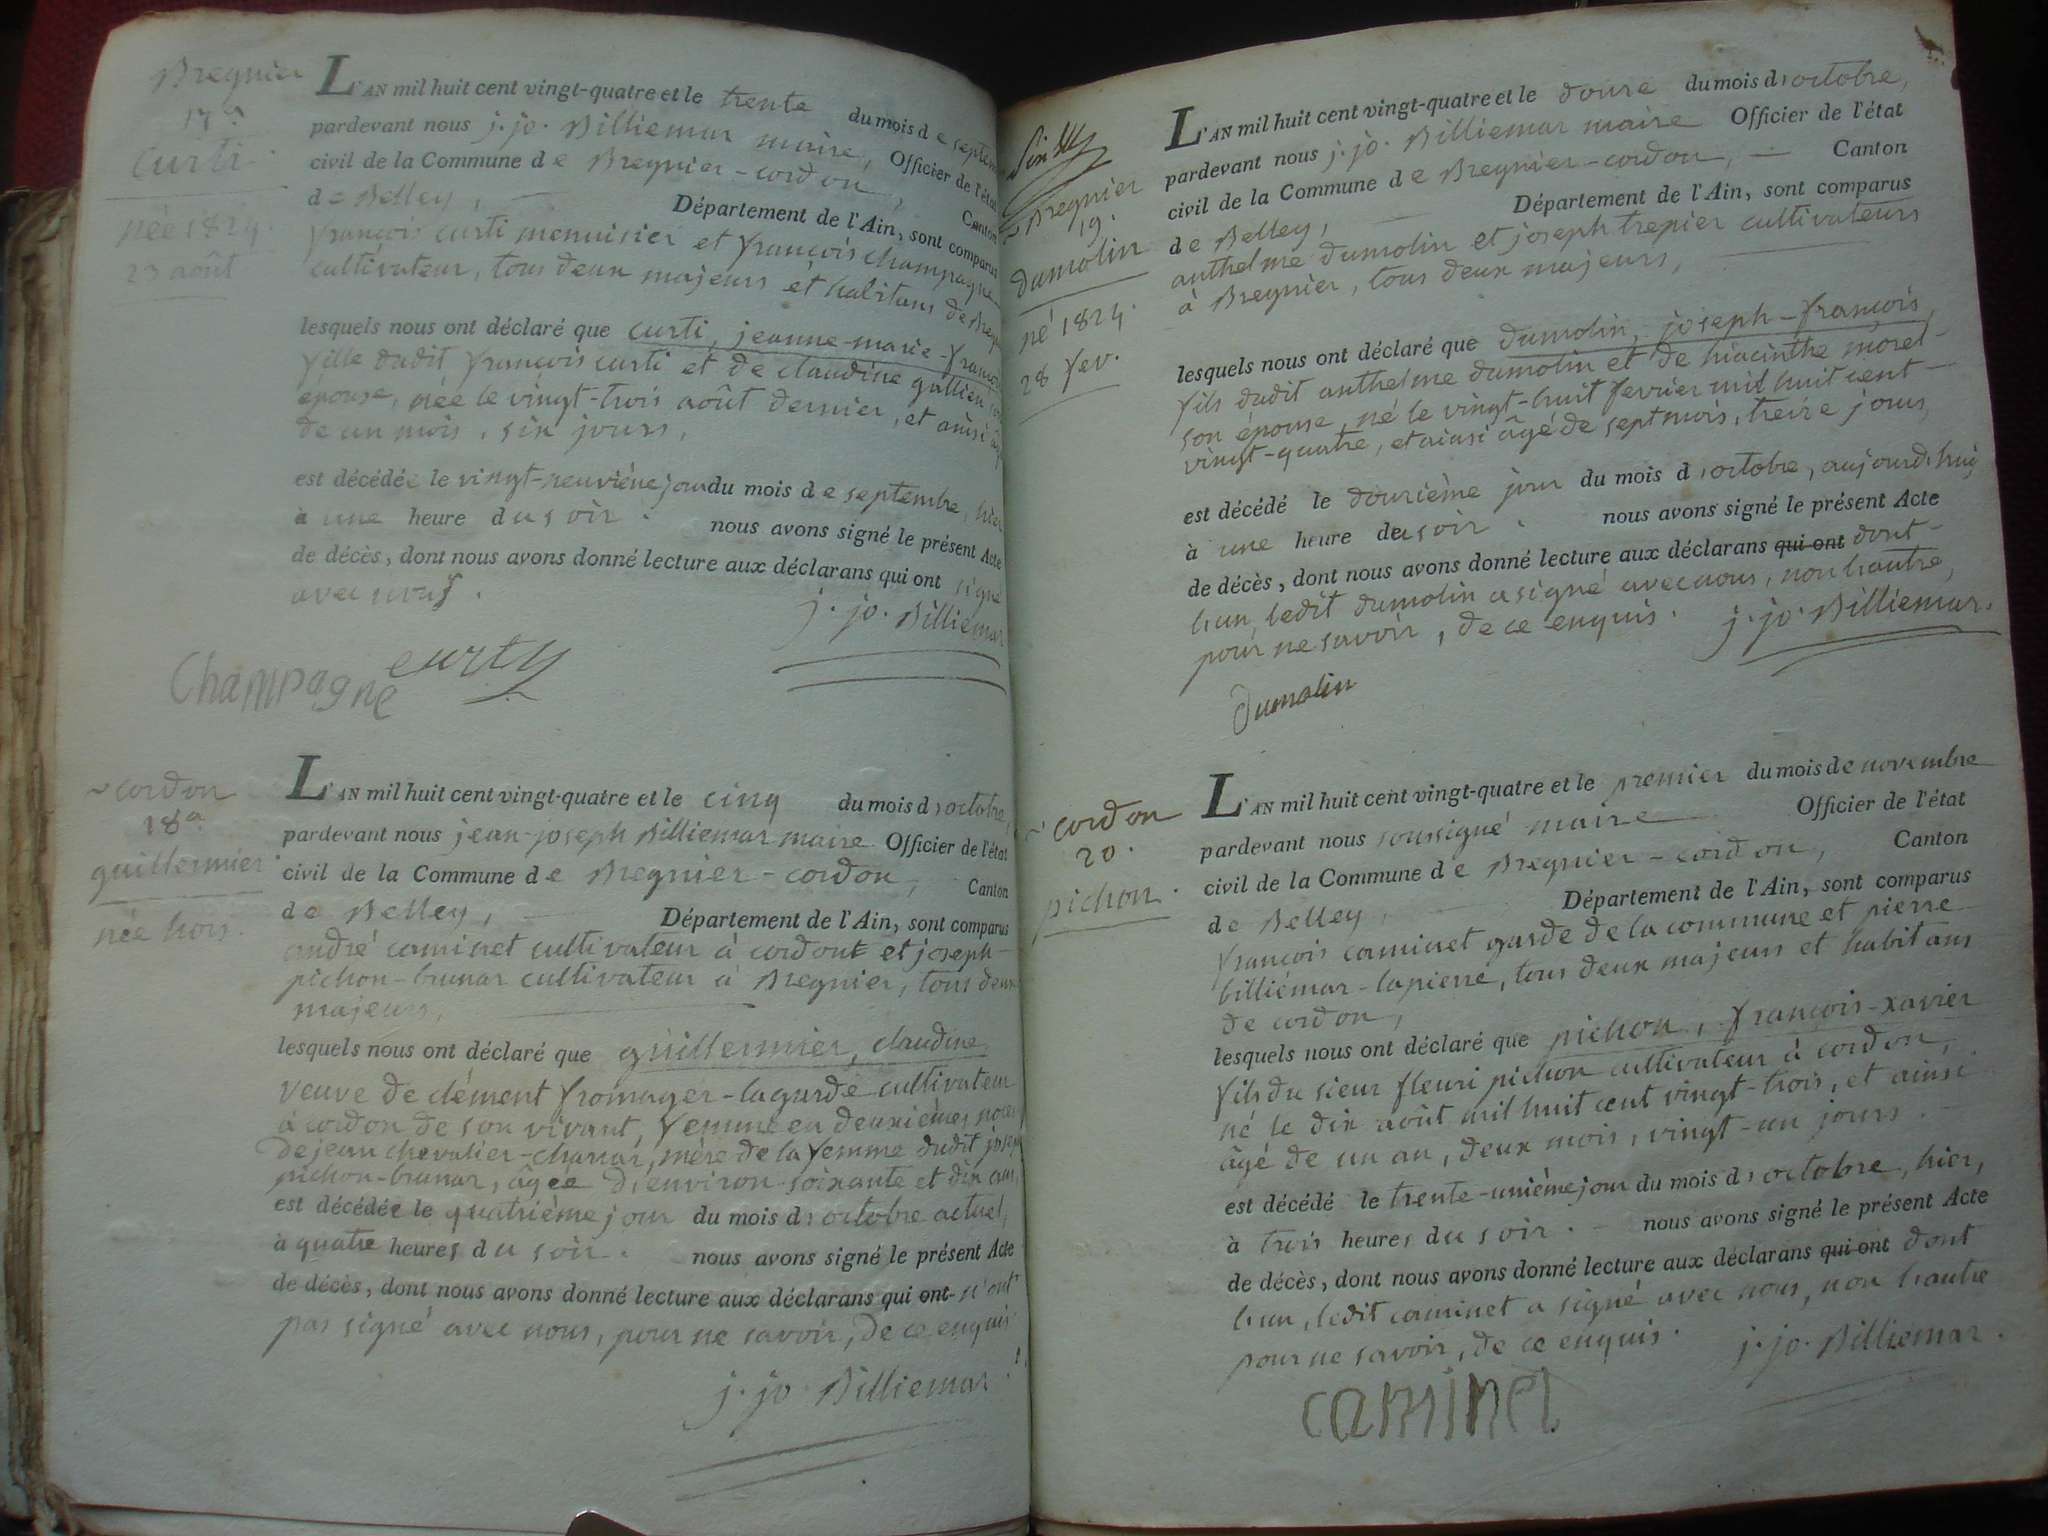 Bregnier
17.e
Curti.
née 1824.
23 août
L'AN mil huit cent vingt-quatre et le trente du mois de septem
pardevant nous j. jo. Billiemar maire, Officier de l'état
civil de la Commune de Bregnier-cordon, Canton
de Belley, Département de l'Ain, sont comparus
françois curti menuisier et françois champagne
cultivateur, tous deux majeurs et habitans de Breg
lesquels nous ont déclaré que curti, jeanne-marie-franço
fille dudit françois curti et de claudine gallien son
épouse, née le vingt-trois août dernier, et ainsi âgé
de un mois, six jours,
est décédée le vingt-neuvième jour du mois de septembre, hier
à une heure du soir. nous avons signé le présent Acte
de décès, dont nous avons donné lecture aux déclarans qui ont signé
avec nous.
j. jo. Billiemar
Champagne curty
cordon
18.e
guillermier.
née hors.
L'AN mil huit cent vingt-quatre et le cinq du mois d'octobre,
pardevant nous jean-joseph Billiemar maire Officier de l'état
civil de la Commune de Bregnier-cordon, Canton
de Belley, Département de l'Ain, sont comparus
andré caminet cultivateur à cordon et joseph
pichon-brunar cultivateur à Bregnier, tous deux
majeurs,
lesquels nous ont déclaré que guillermier, claudine
veuve de clément fromager-lagarde cultivateur
à cordon de son vivant, femme en deuxièmes noces
de jean chevalier-charrar, mère de la femme dudit josep
pichon-brunar, âgée d'environ soixante et dix ans,
est décédée le quatrième jour du mois d'octobre actuel,
à quatre heures du soir. nous avons signé le présent Acte
de décès, dont nous avons donné lecture aux déclarans qui ont n'ont
pas signé avec nous, pour ne savoir, de ce enquis
j. jo. Billiemar
Bregnier
19.
dumolin
né 1824.
28 fev.
L'AN mil huit cent vingt-quatre et le douze du mois d'octobre,
pardevant nous j. jo. Billiemar maire Officier de l'état
civil de la Commune de Bregnier-cordon, Canton
de Belley, Département de l'Ain, sont comparus
anthelme dumolin et joseph trepier cultivateurs
à Bregnier, tous deux majeurs,
lesquels nous ont déclaré que dumolin, joseph-françois,
fils dudit anthelme dumolin et de hiacinthe morel
son épouse, né le vingt-huit fevrier mil huit cent
vingt-quatre, et ainsi âgé de sept mois, treize jours,
est décédé le douzième jour du mois d'octobre, aujourd'hui,
à une heure du soir. nous avons signé le présent Acte
de décès, dont nous avons donné lecture aux déclarans qui ont dont
l'un, ledit dumolin a signé avec nous, non l'autre,
pour ne savoir, de ce enquis. j. jo. Billiemar.
Dumolin
cordon
20.
pichon.
L'AN mil huit cent vingt-quatre et le premier du mois de novembre
pardevant nous soussigné maire Officier de l'état
civil de la Commune de Bregnier-cordon, Canton
de Belley, Département de l'Ain, sont comparus
françois caminet garde de la commune et pierre
billiémar-lapierre, tous deux majeurs et habitans
de cordon,
lesquels nous ont déclaré que pichon, françois-xavier
fils du sieur fleuri pichon cultivateur à cordon,
né le dix août mil huit cent vingt-trois, et ainsi
âgé de un an, deux mois, vingt-un jours.
est décédé le trente-unième jour du mois d'octobre, hier,
à trois heures du soir. nous avons signé le présent Acte
de décès, dont nous avons donné lecture aux déclarans qui ont dont
l'un, ledit caminet a signé avec nous, non l'autre
pour ne savoir, de ce enquis. j. jo. Billiemar.
caminet